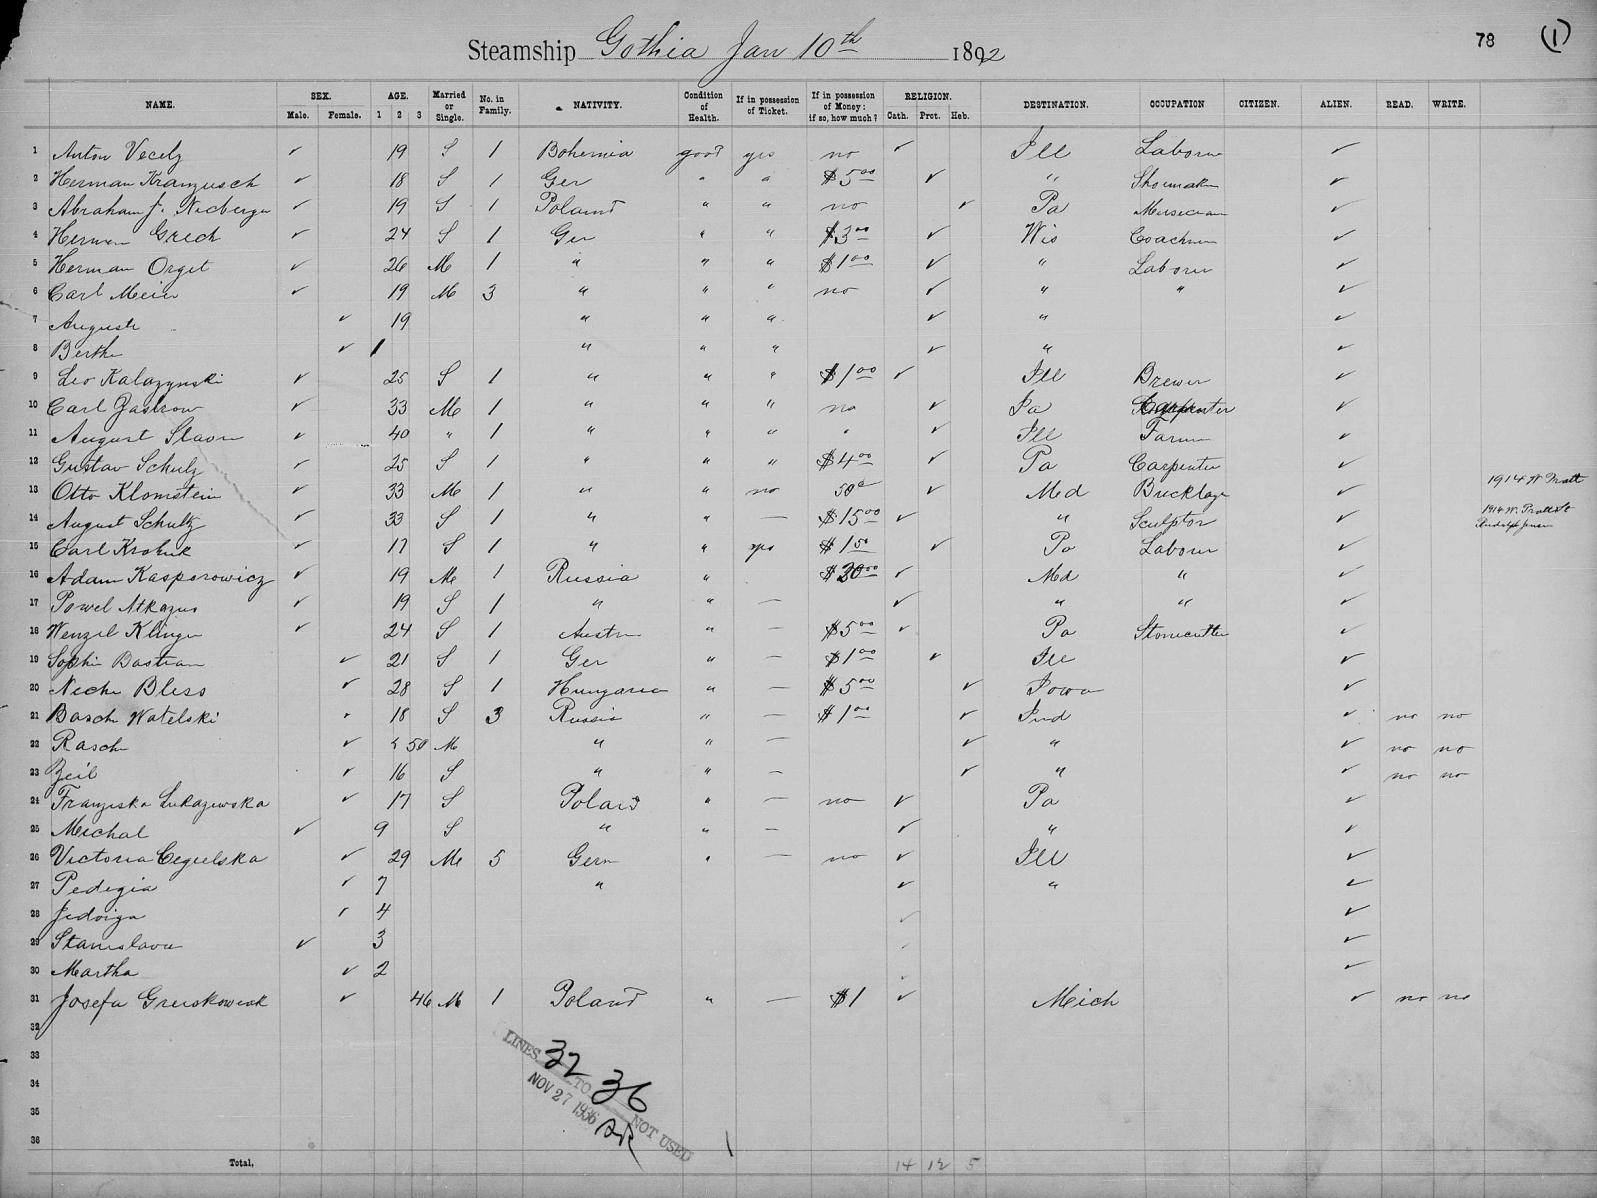 78 (1)
Steamship Gothia Jan 10th 1892
NAME. SEX. Male. Female. AGE. 1 2 3 Married or Single. No. in Family. NATIVITY. Condition of Health. If in possession of Ticket. If in possession of Money: if so, how much? RELIGION. Cath. Prot. Heb. DESTINATION. OCCUPATION CITIZEN. ALIEN. READ. WRITE.
1 Anton Vecelz ✓ 19 S 1 Bohemia good yes no ✓ Ill Laborer ✓
2 Herman Kranzusch ✓ 18 S 1 Ger " " $5 00 ✓ " Shoemaker ✓
3 Abraham J. ✓ 19 S 1 Poland " " no ✓ Pa Musician ✓
4 Herman Grech ✓ 24 S 1 Ger " " $3 00 ✓ Wis Coachman ✓
5 Herman Orget ✓ 26 M 1 " " " $1 00 ✓ " Laborer ✓
6 Carl Meier ✓ 19 M 3 " " " no ✓ " " ✓
7 Auguste ✓ 19 " " " ✓ " ✓
8 Bertha ✓ 1 " " " ✓ " ✓
9 Leo Kalazynski ✓ 25 S 1 " " " $1 00 ✓ Ill Brewer ✓
10 Carl Zastrow ✓ 33 M 1 " " " no ✓ Pa Carpenter ✓
11 August ✓ 40 " 1 " " " " ✓ Ill Farmer ✓
12 Gustav Schulz ✓ 25 S 1 " " " $4 00 ✓ Pa Carpenter ✓
13 Otto Klomstein ✓ 33 M 1 " " no 50 c ✓ Md Bricklayer ✓ 1914 W Pratt
14 August Schultz ✓ 33 S 1 " " — $15 00 ✓ " Sculptor ✓ 1914 W. Pratt St
15 Carl ✓ 17 S 1 " " yes $1 50 ✓ Pa Laborer ✓
16 Adam Kasporowicz ✓ 19 M 1 Russia " $30 00 ✓ Md " ✓
17 Powel Atkazus ✓ 19 S 1 " " — ✓ " " ✓
18 Wenzel Klinger ✓ 24 S 1 Austria " — $5 00 ✓ Pa Stonecutter ✓
19 Sophie Bastian ✓ 21 S 1 Ger " — $1 00 ✓ Ill ✓
20 Neche Bless ✓ 28 S 1 Hungaria " — $5 00 ✓ Iowa ✓
21 Basche Watelski ✓ 18 S 3 Russia " — $1 00 ✓ Ind ✓ no no
22 Rasche ✓ 50 M " " — ✓ " ✓ no no
23 Zeil ✓ 16 S " " — ✓ " ✓ no no
24 Franziska Lukazewska ✓ 17 S Poland " — no ✓ Pa ✓
25 Michal ✓ 9 S " " — ✓ " ✓
26 Victoria Cegielska ✓ 29 M 5 Germ " — no ✓ Ill ✓
27 Pedegia ✓ 7 " ✓ " ✓
28 Jedoiga ✓ 4 ✓ ✓
29 Stanislava ✓ 3 ✓ ✓
30 Martha ✓ 2 ✓ ✓
31 Josefa Gruskowiak ✓ 46 M 1 Poland " — $1 ✓ Mich ✓ no no
32
33
34
35
36
LINES 32 TO 36 NOT USED
NOV 27 1936
Total, 14 12 5